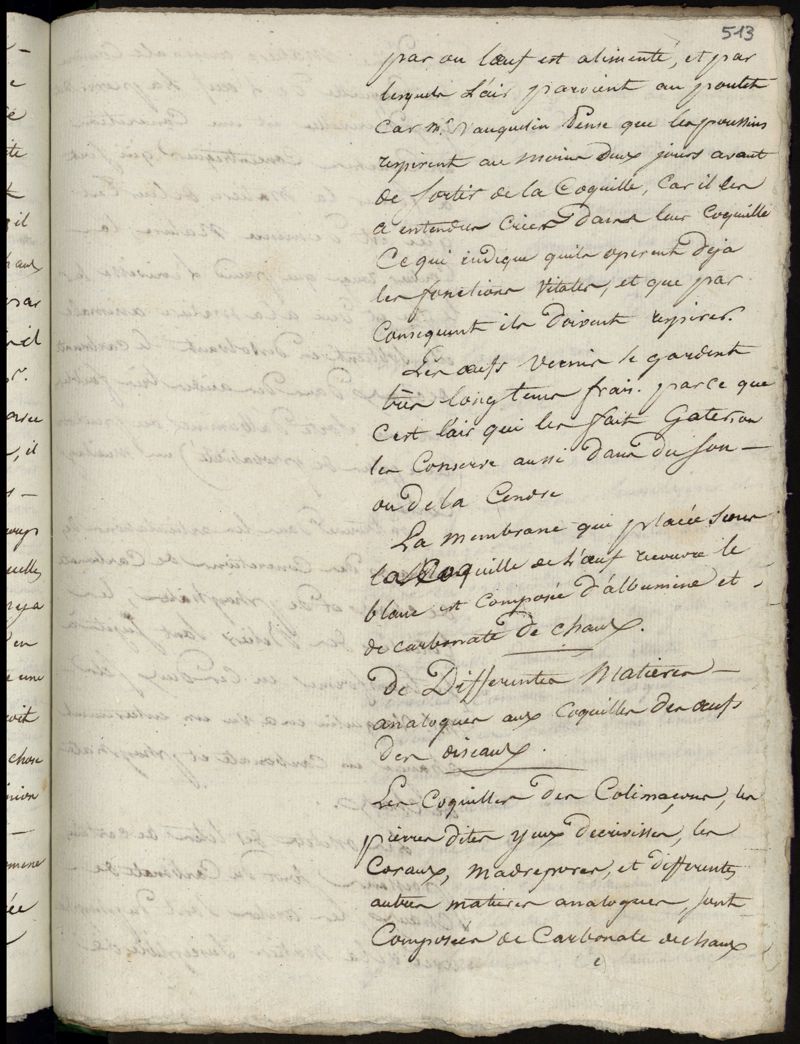 513
par ou l'œuf est alimenté, et par
lesquels L'air parvient au poulet
Car mr. Vauquelin Pense que les poussins
respirent au moins deux jours avant
de Sortir de la Coquille, car il les
a entendus Crier Dans leur Coquille
Ce qui indique quils operent Deja
les fonctions Vitales, et que par
Consequent ils Doivent respirer.
Les œufs vernis se gardent
très longtems frais. parce que
C'est l'air qui les fait Gater, on
les Conserve aussi Dans du Son —
ou de la Cendre
La membrane qui placée Sous
la Coquille de L'œuf recouvre le
blanc est Composée d'albumine et
de carbonate De chaux.
De Differentes Matieres —
analogues aux Coquilles des œufs
des oiseaux.
Les Coquilles des Colimaçons, les
pierres dites yeux Decrevisses, les
Coraux, madrepores, et differentes
autres matieres analogues, sont
Composées de Carbonate de chaux
il
chaux
par
il
chose